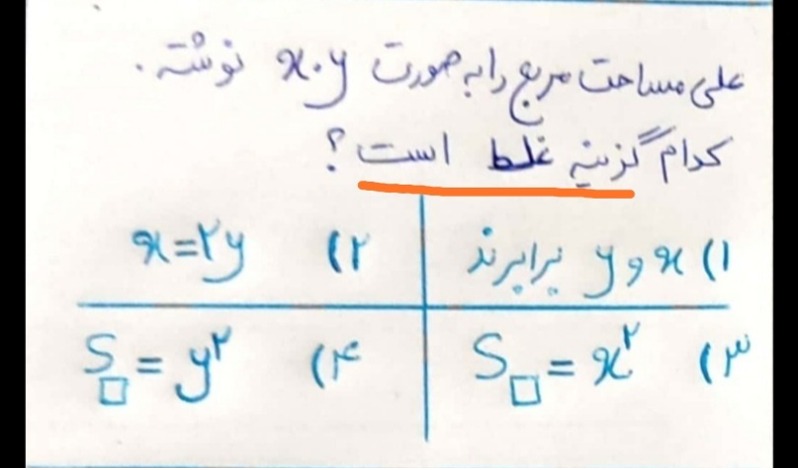 علی مساحت مربع را به صورت x.y نوشته.
کدام گزینه غلط است؟
۱) x و y برابرند
۲) x=۲y
۳) S□ = x²
۴) S□ = y²